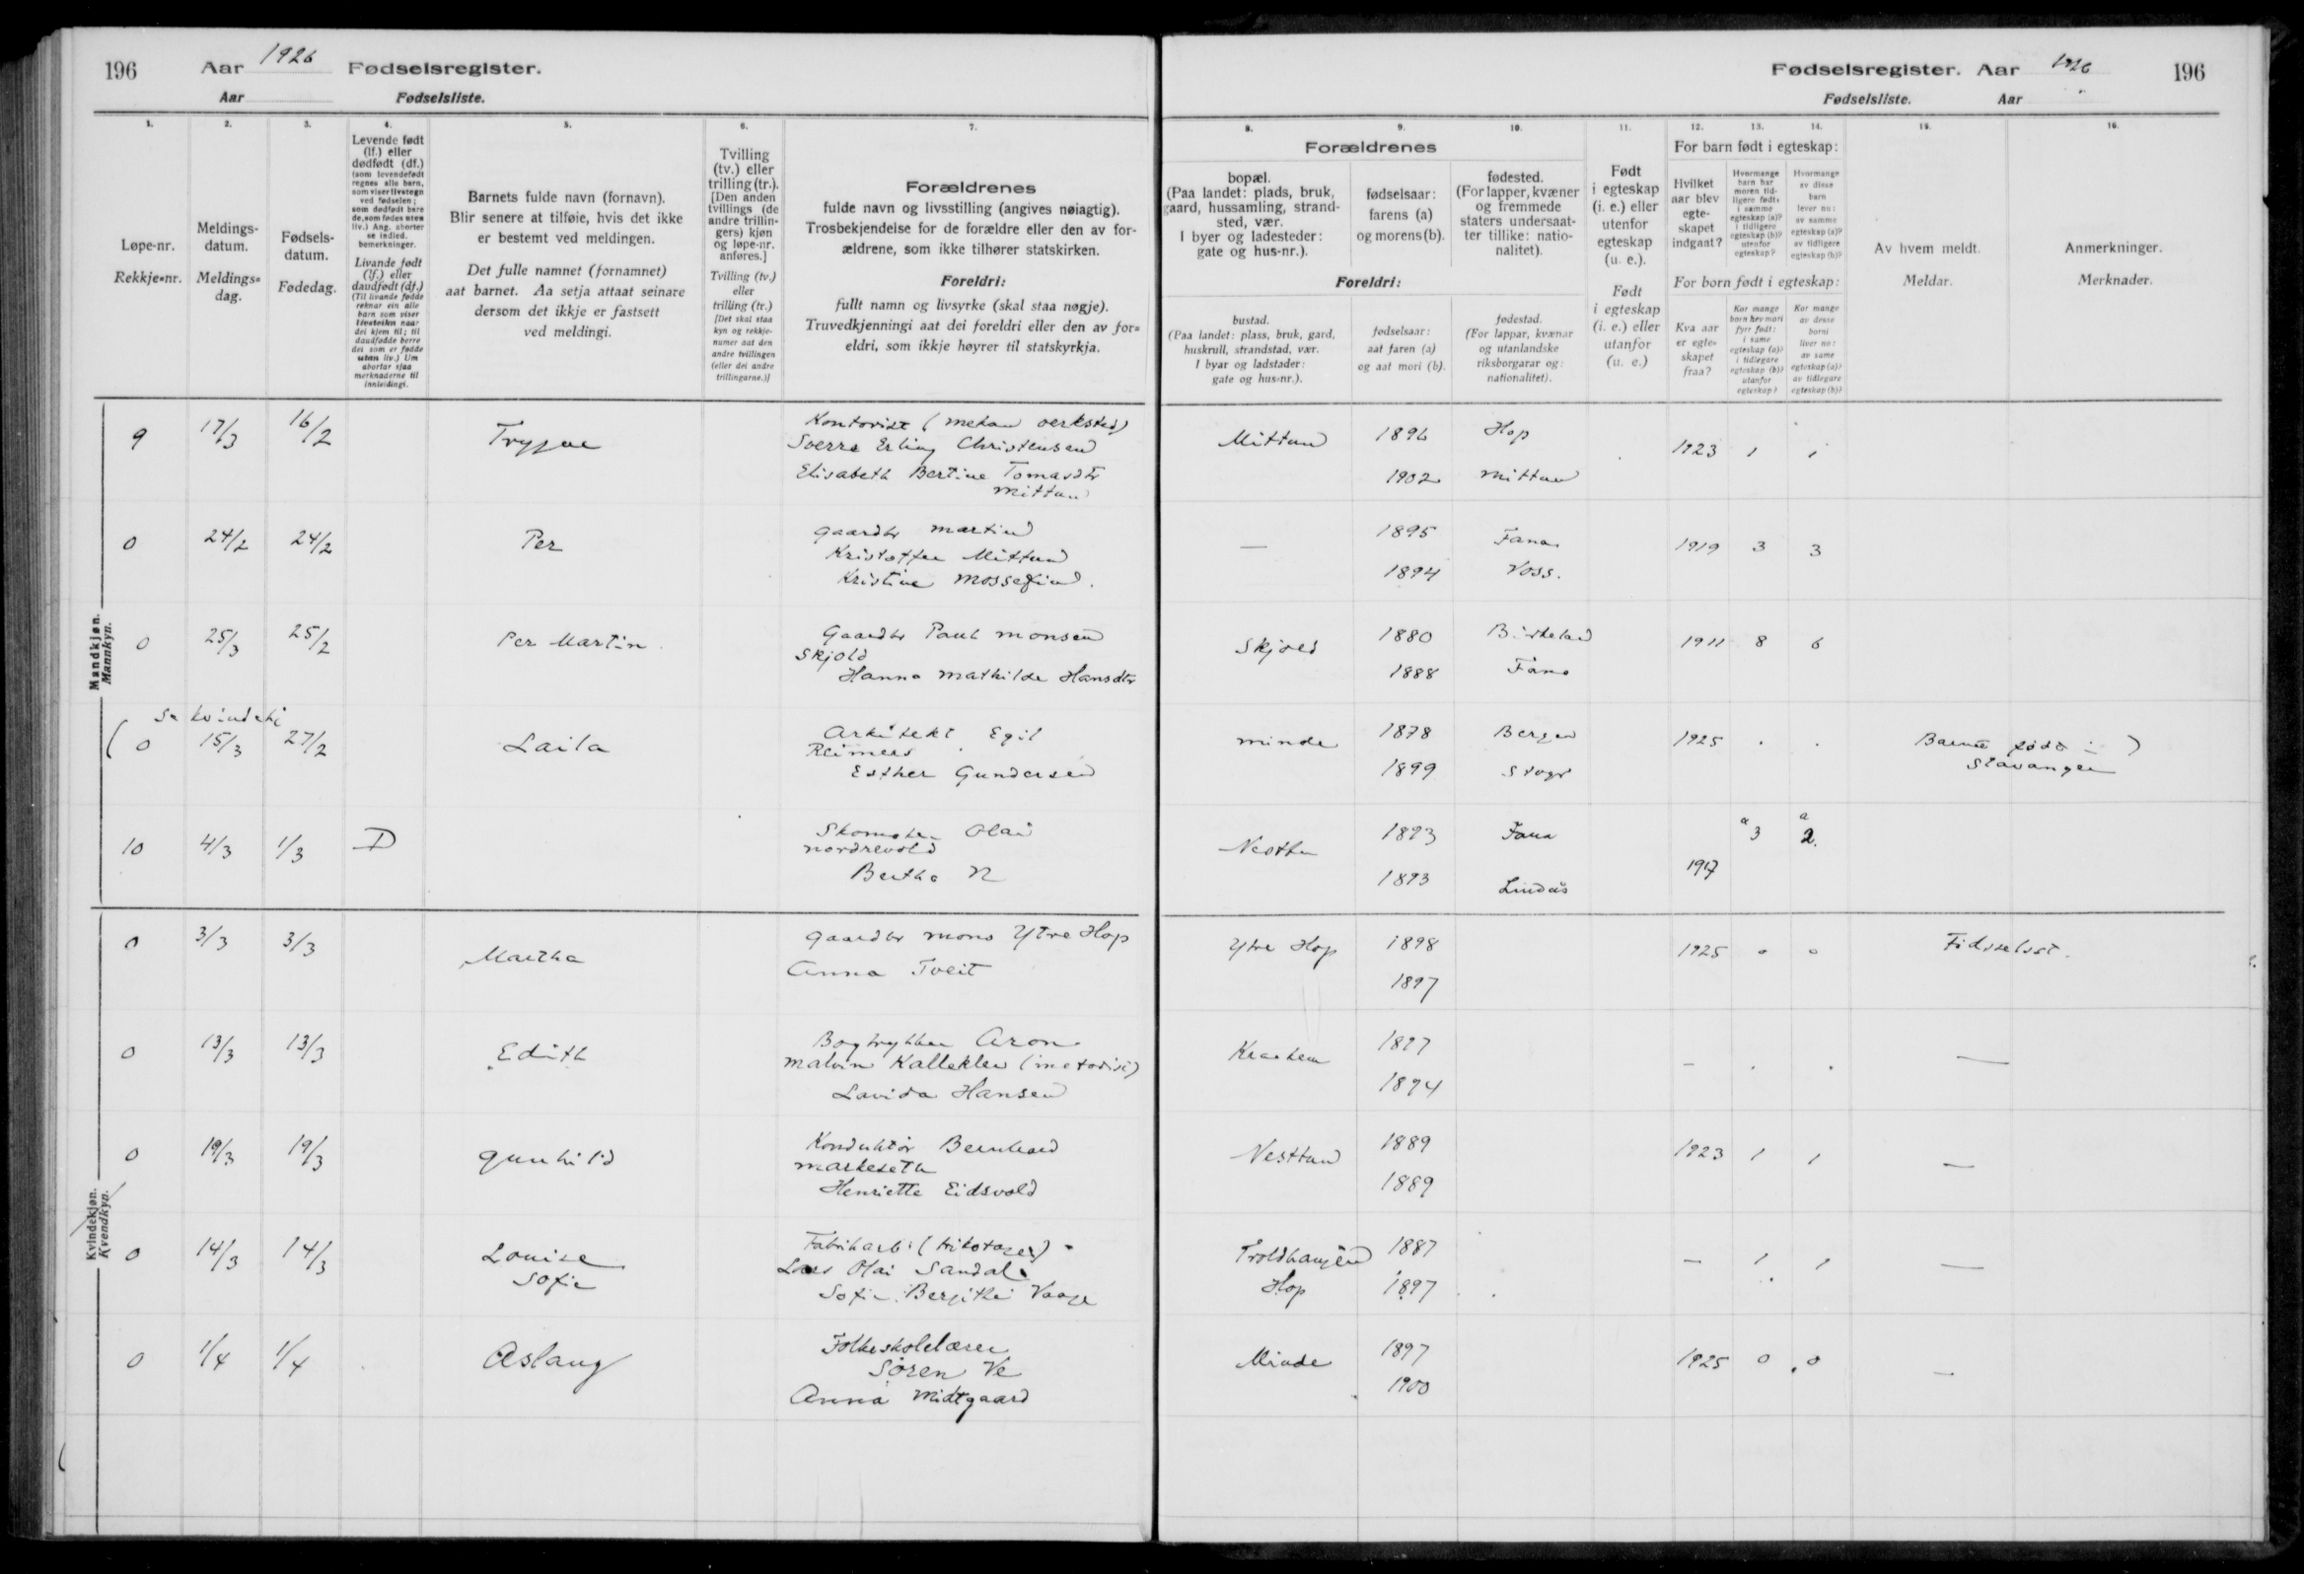 196 Aar 1926 Fødselsregister.
Aar Fødselsliste.
1. 2. 3. 4. 5. 6. 7.
Løpe-nr.
Rekkje=nr.
Meldings-
datum.
Meldings=
dag.
Fødsels-
datum.
Fødedag.
Levende født
(lf.) eller
dødfødt (df.)
(som levendefødt
regnes alle barn,
som viser livstegn
ved fødselen;
som dødfødt bare
de, som fødes uten
liv.) Ang. aborter
se indled.
bemerkninger.
Livande født
(lf.) eller
daudfødt (df.)
(Til livande fødde
reknar ein alle
barn som viser
livsteikn naar
dei kjem til; til
daudfødde berre
dei som er fødde
utan liv.) Um
abortar sjaa
merknaderne til
innleidingi.
Barnets fulde navn (fornavn).
Blir senere at tilføie, hvis det ikke
er bestemt ved meldingen.
Det fulle namnet (fornamnet)
aat barnet. Aa setja attaat seinare
dersom det ikkje er fastsett
ved meldingi.
Tvilling
(tv.) eller
trilling (tr.).
[Den anden
tvillings (de
andre trillin-
gers) kjøn
og løpe-nr.
anføres.]
Tvilling (tv.)
eller
trilling (tr.)
[Det skal staa
kyn og rekkje-
numer aat den
andre tvillingen
(eller dei andre
trillingarne.)]
Forældrenes
fulde navn og livsstilling (angives nøiagtig).
Trosbekjendelse for de forældre eller den av for-
ældrene, som ikke tilhører statskirken.
Foreldri:
fullt namn og livsyrke (skal staa nøgje).
Truvedkjenningi aat dei foreldri eller den av for=
eldri, som ikkje høyrer til statskyrkja.
Mandkjøn.
Mannkyn.
9 17/3 16/2 Trygve
Kontorist (mekan verksted)
Sverre Erling Christensen
Elisabeth Bertine Tomasdtr
Mittun
0 24/2 24/2 Per
Gaardbr Martin
Kristoffer Mittun
Kristine Mossefin.
0 25/3 25/2 Per Martin
Gaardbr Paul Monsen
Skjold
Hanna Mathilde Hansdtr
Se kvindekj
( 0 15/3 27/2 Laila
Arkitekt Egil
Reimers
Esther Gundersen
10 4/3 1/3 D
Skomaker Olai
Nordrevold
Bertha N
Kvindekjøn.
Kvendkyn.
0 3/3 3/3 Martha
Gaardbr Mons Ytre Hop
Anna Tveit
0 13/3 13/3 Edith
Bogtrykker Aron
Malvin Kalleklev (metodist)
Lavida Hansen
0 19/3 19/3 Gunhild
Konduktør Bernhard
Markeseth
Henriette Eidsvold
0 14/3 14/3 Louise
Sofie
Fabrikarb. (trikotage)
Lars Olai Sandal
Sofie Bergithe Vaage
0 1/4 1/4 Aslaug
Folkeskolelærer
Søren Ve
Anna Midtgaard
Fødselsregister. Aar 1926 196
Fødselsliste. Aar
8. 9. 10. 11. 12. 13. 14. 15. 16.
Forældrenes
bopæl.
(Paa landet: plads, bruk,
gaard, hussamling, strand-
sted, vær.
I byer og ladesteder:
gate og hus-nr.).
fødselsaar:
farens (a)
og morens (b).
fødested.
(For lapper, kvæner
og fremmede
staters undersaat-
ter tillike: natio-
nalitet).
Foreldri:
bustad.
(Paa landet: plass, bruk, gard,
huskrull, strandstad, vær.
I byar og ladstader:
gate og hus=nr.).
fødselsaar:
aat faren (a)
og aat mori (b).
fødestad.
(For lappar, kvænar
og utanlandske
riksborgarar og:
nationalitet).
Født
i egteskap
(i. e.) eller
utenfor
egteskap
(u. e.).
Født
i egteskap
(i. e.) eller
utanfor
(u. e.)
For barn født i egteskap:
Hvilket
aar blev
egte-
skapet
indgaat?
Hvormange
barn har
moren tid-
ligere født:
i samme
egteskap (a)?
i tidligere
egteskap (b)?
utenfor
egteskap?
Hvormange
av disse
barn
lever nu:
av samme
egteskap (a)?
av tidligere
egteskap (b)?
For born født i egteskap:
Kva aar
er egte=
skapet
fraa?
Kor mange
born hev mori
fyrr født:
i same
egteskap (a)?
i tidlegare
egteskap (b)?
utanfor
egteskap?
Kor mange
av desse
borni
liver no:
av same
egteskap (a)?
av tidlegare
egteskap (b)?
Av hvem meldt.
Meldar.
Anmerkninger.
Merknader.
Mittun 1896 Hop 1923 1 1
1902 Mittun
— 1895 Fana 1919 3 3
1894 Voss.
Skjold 1880 Birkeland 1911 8 6
1888 Fana
Minde 1878 Bergen 1925 Barnet født i )
1899 Stvgr Stavanger
Nesttun 1893 Fana a 3 a 2.
1893 Lindås 1917
Ytre Hop 1898 1925 0 0 Fødselsst.
1897
1897 — —
1894
Nesttun 1889 1923 1 1 —
1889
Troldhaugen 1887 — 1 1 —
Hop 1897
Minde 1897 1925 0 0 —
1900